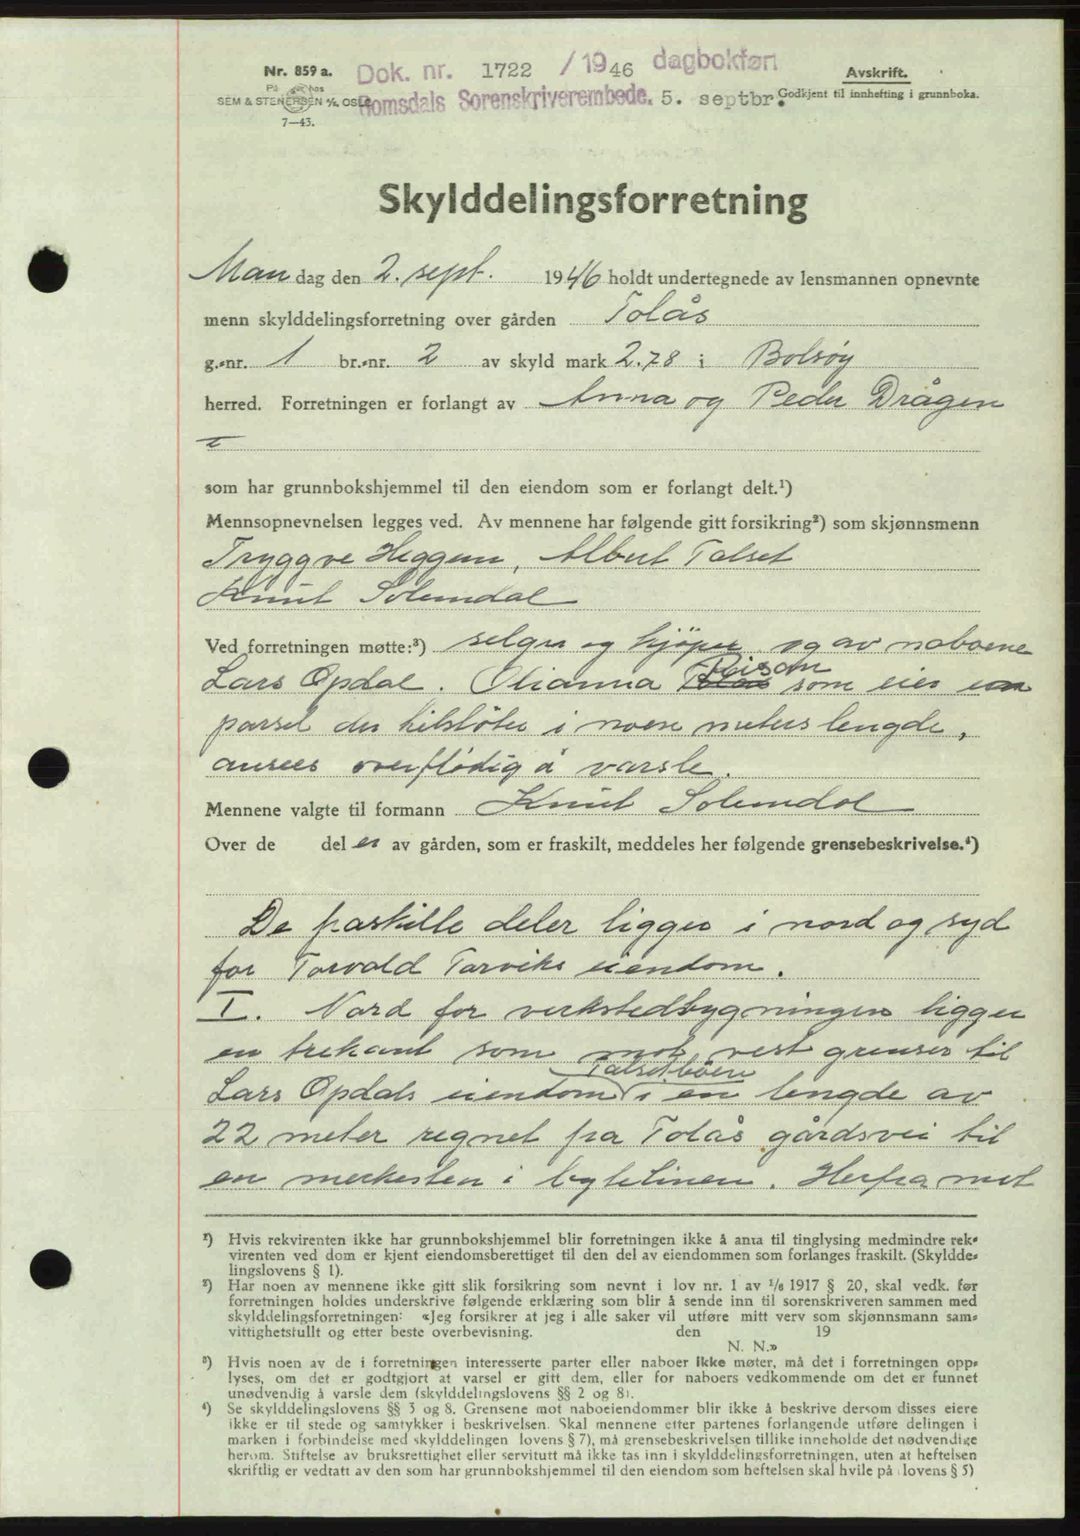 Nr. 859 a.
På lager hos
SEM & STENERSEN A/S, OSLO
7—43.
Dok. nr. 1722 / 1946 dagbokført
Romsdals Sorenskriverembede. 5. septbr.
Avskrift.
Godkjent til innhefting i grunnboka.
Skylddelingsforretning
Man dag den 2. sept. 1946 holdt undertegnede av lensmannen opnevnte
menn skylddelingsforretning over gården Tolås
g.-nr. 1 br.-nr. 2 av skyld mark 2.78 i Bolsøy
herred. Forretningen er forlangt av Anna og Peder Drågen
som har grunnbokshjemmel til den eiendom som er forlangt delt.¹)
Mennsopnevnelsen legges ved. Av mennene har følgende gitt forsikring²) som skjønnsmenn
Tryggve Heggem, Albert Talset
Knut Solemdal
Ved forretningen møtte:³) selger og kjøper og av naboene
Lars Opdal. Olianna som eier en
parsel der tilstøter i noen meters lengde,
ansees overflødig å varsle.
Mennene valgte til formann Knut Solemdal
Over de del er av gården, som er fraskilt, meddeles her følgende grensebeskrivelse.⁴)
De fraskille deler ligger i nord og syd
for Torvald Tarviks eiendom.
I. Nord for verkstedbygningen ligger
en trekant som mot vest grenser til
Talsetbøen
Lars Opdals eiendom i en lengde av
22 meter regnet fra Tolås gårdsvei til
en merkesten i bytelinen. Herfra mot
¹) Hvis rekvirenten ikke har grunnbokshjemmel blir forretningen ikke å anta til tinglysing medmindre rek-
virenten ved dom er kjent eiendomsberettiget til den del av eiendommen som forlanges fraskilt. (Skyldde-
lingslovens § 1).
²) Har noen av mennene ikke gitt slik forsikring som nevnt i lov nr. 1 av 1/6 1917 § 20, skal vedk. før
forretningen holdes underskrive følgende erklæring som blir å sende inn til sorenskriveren sammen med
skylddelingsforretningen: «Jeg forsikrer at jeg i alle saker vil utføre mitt verv som skjønnsmann sam-
vittighetsfullt og etter beste overbevisning. den 19
N. N.»
³) Hvis noen av de i forretningen interesserte parter eller naboer ikke møter, må det i forretningen opp-
lyses, om det er godtgjort at varsel er gitt dem, eller for naboers vedkommende om det er funnet
unødvendig å varsle dem (skylddelingslovens §§ 2 og 8).
⁴) Se skylddelingslovens §§ 3 og 8. Grensene mot naboeiendommer blir ikke å beskrive dersom disses eiere
ikke er til stede og samtykker i beskrivelsen. Skal mennene etter partenes forlangende utføre delingen i
marken i forbindelse med skylddelingen lovens § 7), må grensebeskrivelsen tillike inneholde det nødvendige
herom. Stiftelse av bruksrettighet eller servitutt må ikke tas inn i skylddelingsforretningen, uten at heftelsen
skriftlig er vedtatt av den som har grunnbokshjemmel til den eiendom som heftelsen skal hvile på lovens § 5)